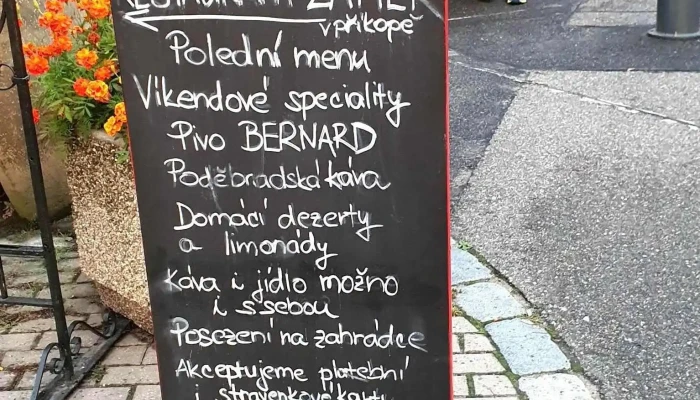 RESTAURANT ZÁMEK
v příkopě
Polední menu
Víkendové speciality
Pivo BERNARD
Poděbradská káva
Domácí dezerty
a limonády
Káva i jídlo možno
i s sebou
Posezení na zahrádce
Akceptujeme platební
i stravenkové karty